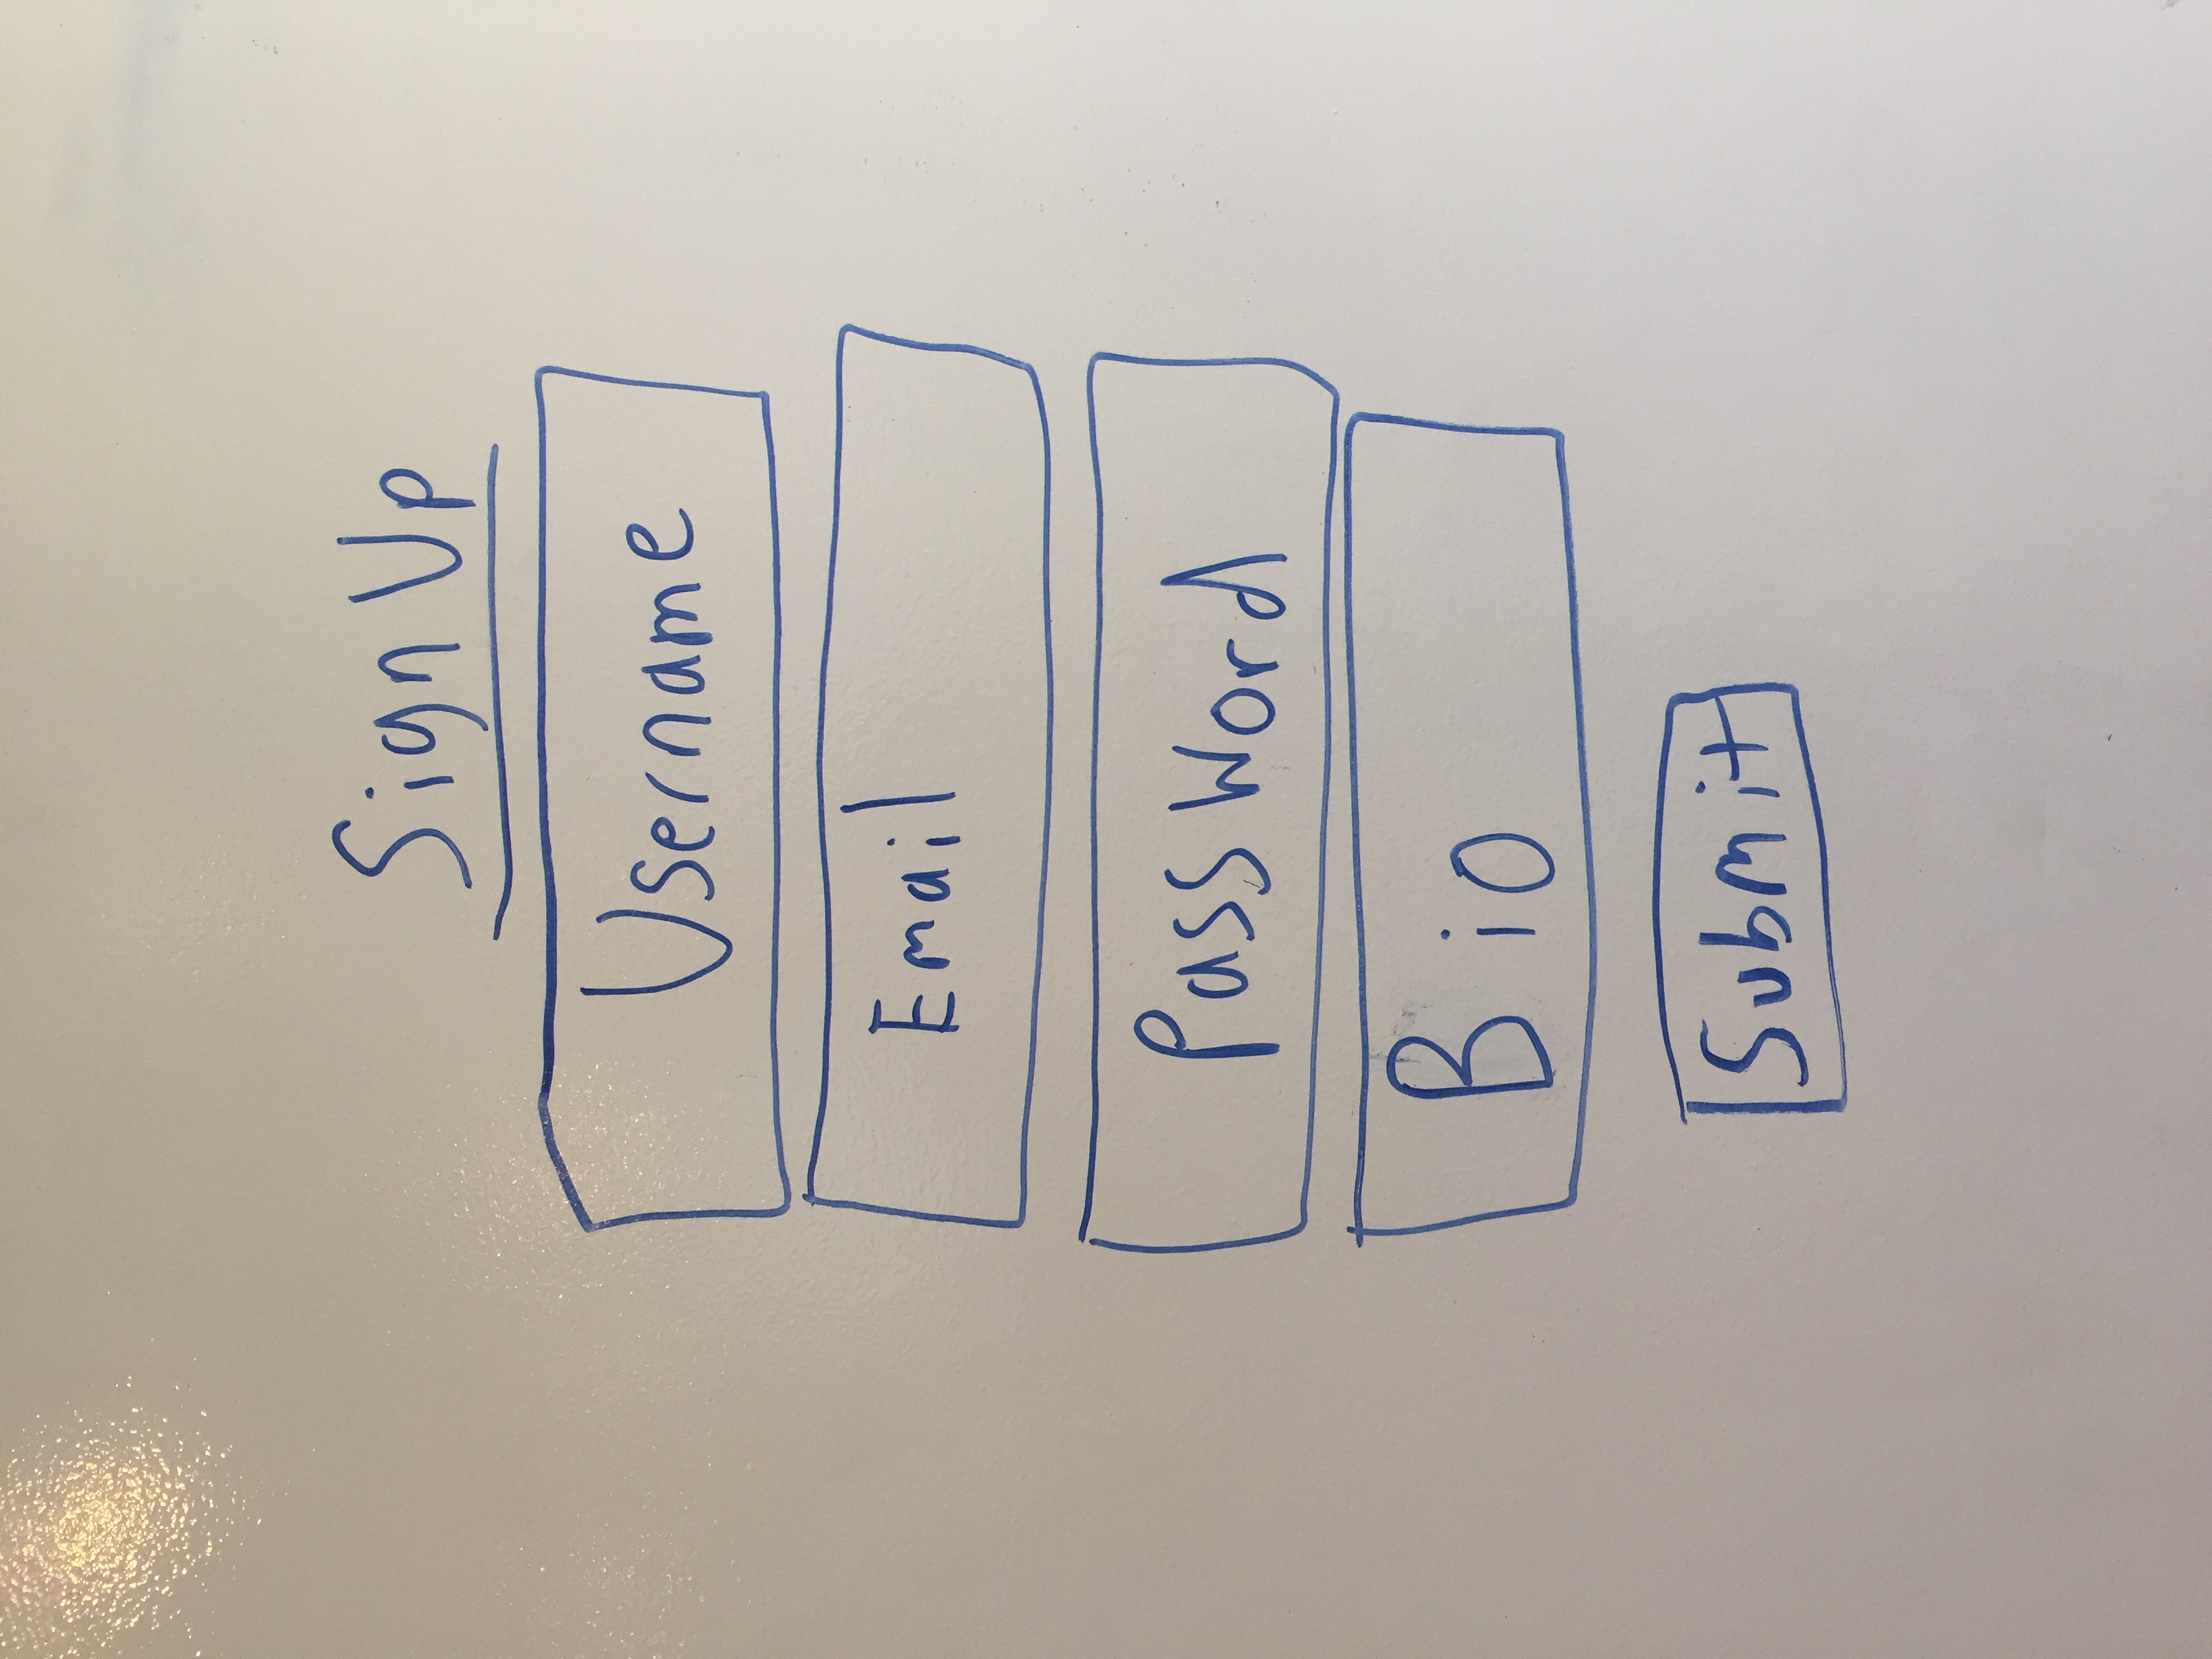 Sign Up
Username
Email
PassWord
Bio
Submit